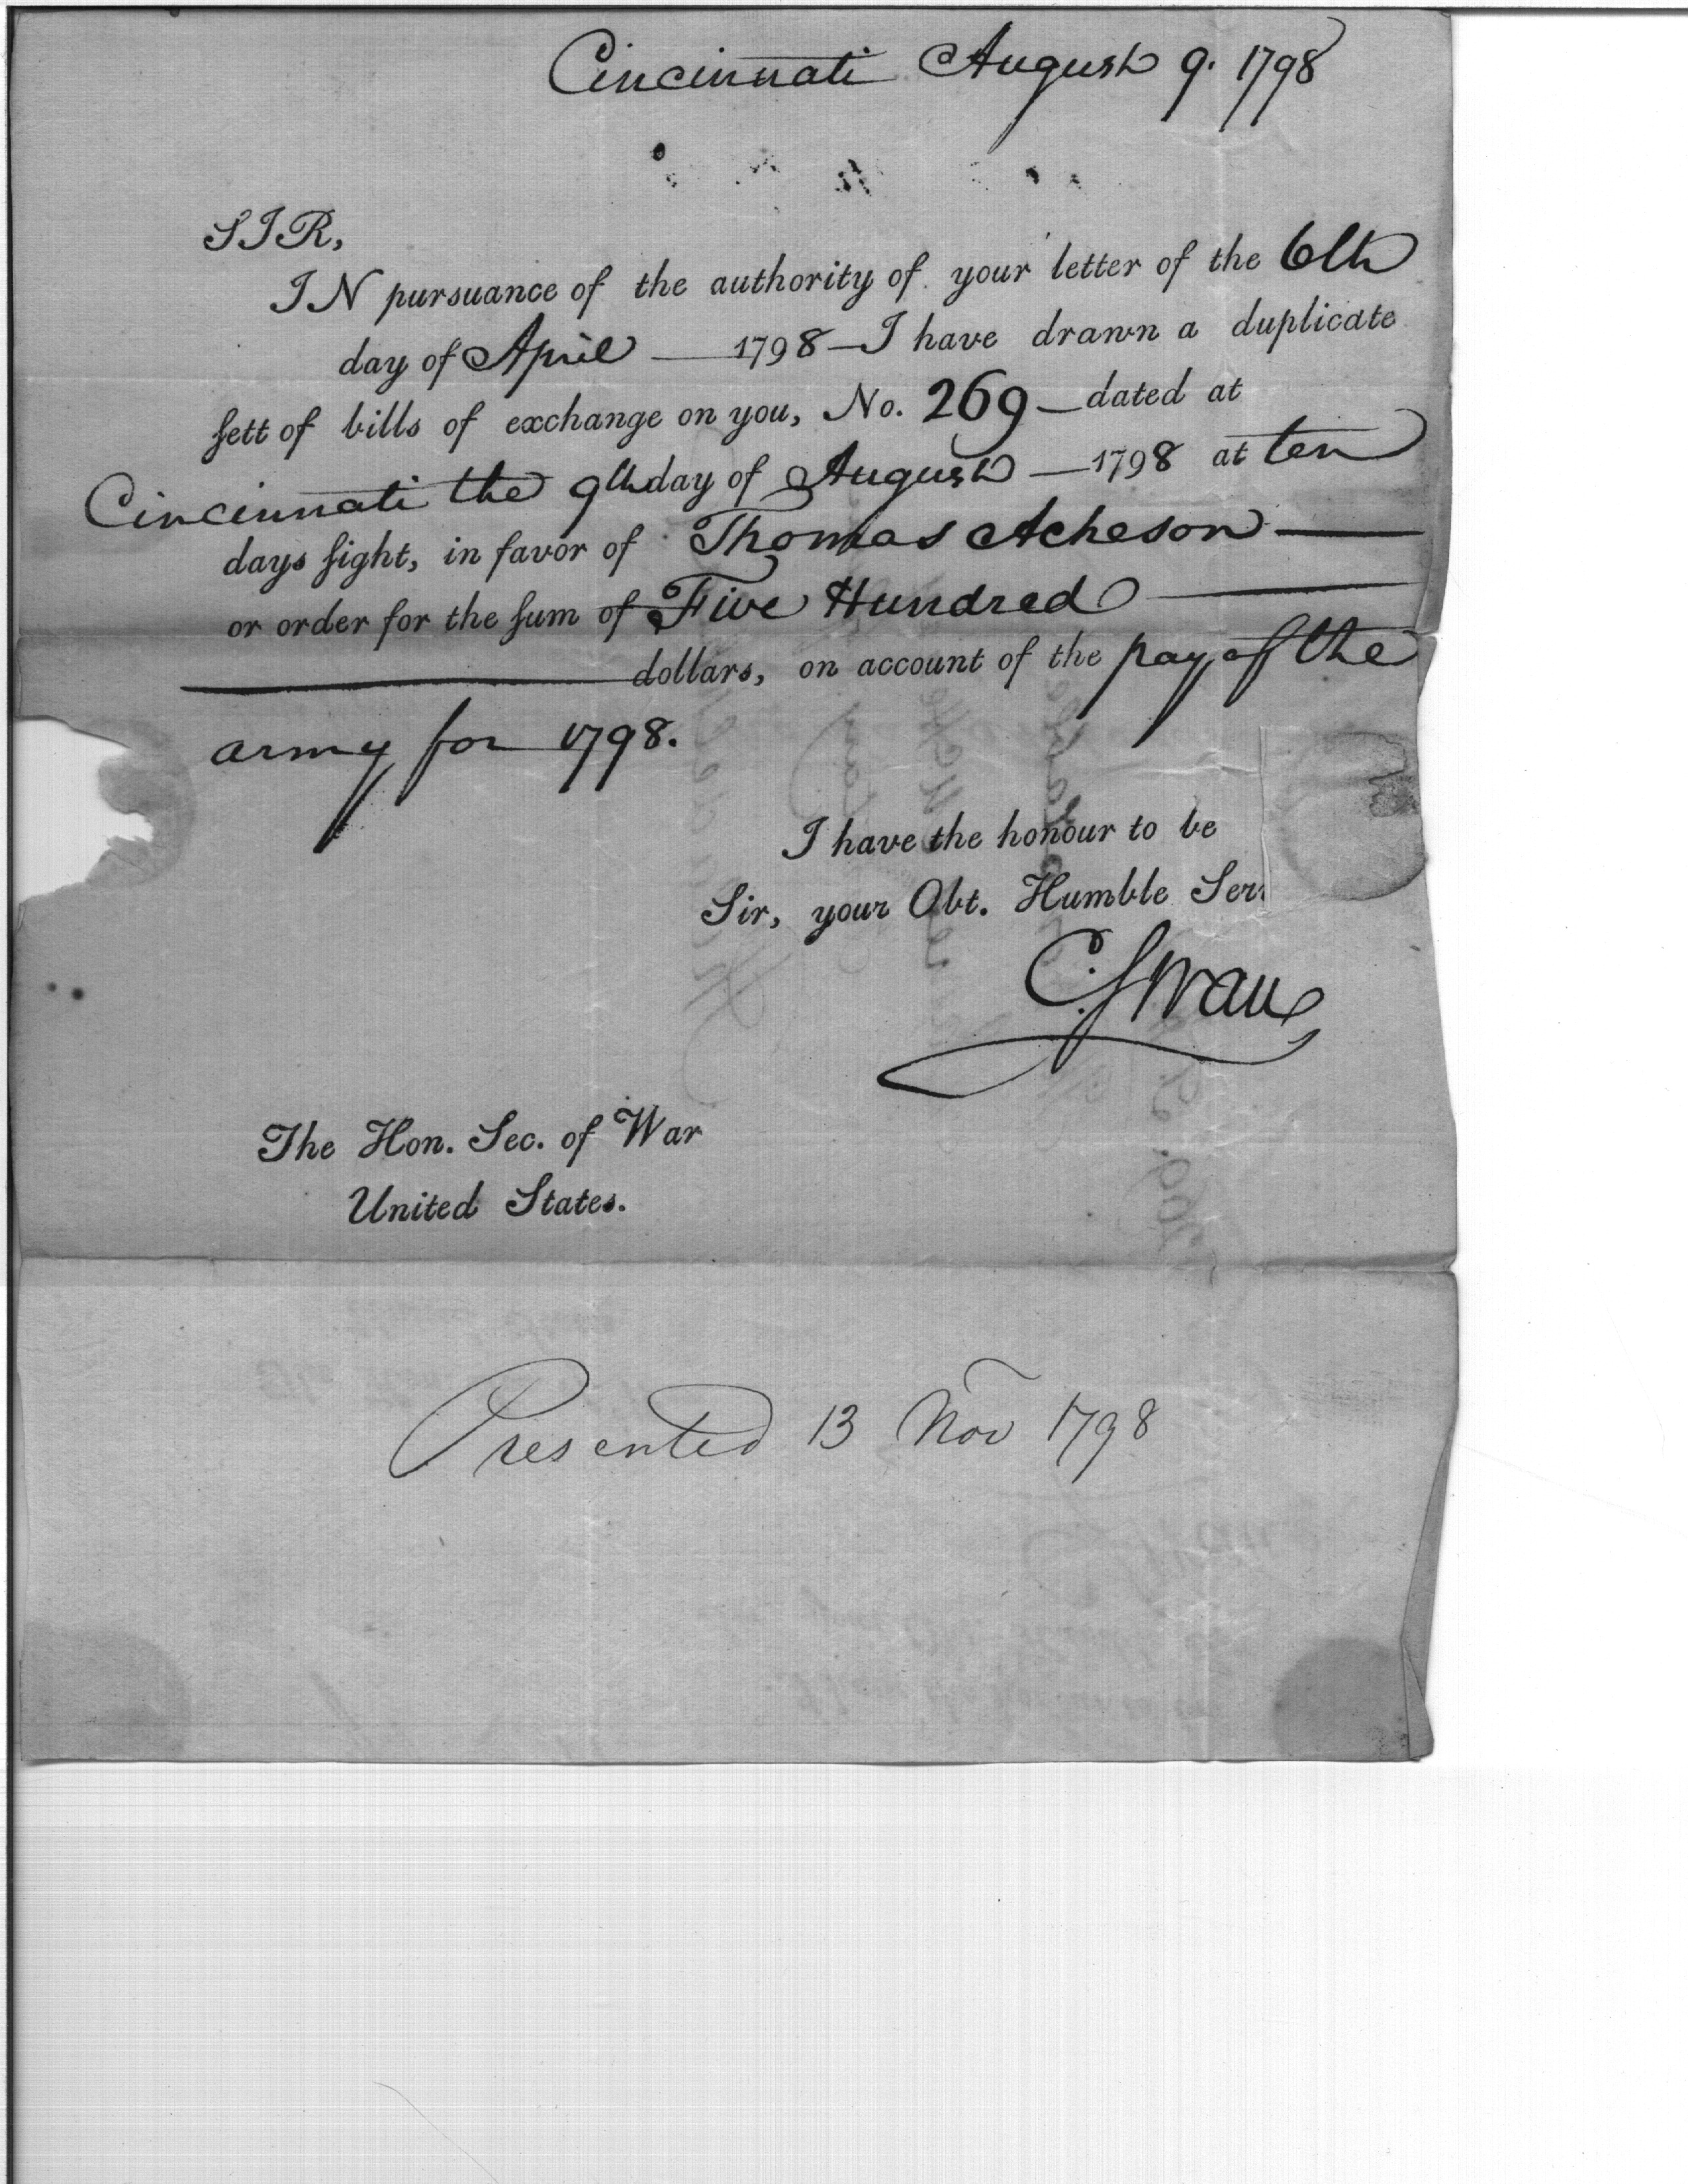 Cincinnati August 9. 1798
SIR,
IN pursuance of the authority of your letter of the 6th
day of April — 1798 — I have drawn a duplicate
sett of bills of exchange on you, No. 269 — dated at
Cincinnati the 9th day of August — 1798 at ten
days sight, in favor of Thomas Acheson —
or order for the sum of Five Hundred —
— dollars, on account of the pay of the
army for 1798.
I have the honour to be
Sir, your Obt. Humble Ser
C. Swan
The Hon. Sec. of War
United States.
Presented 13 Nov 1798